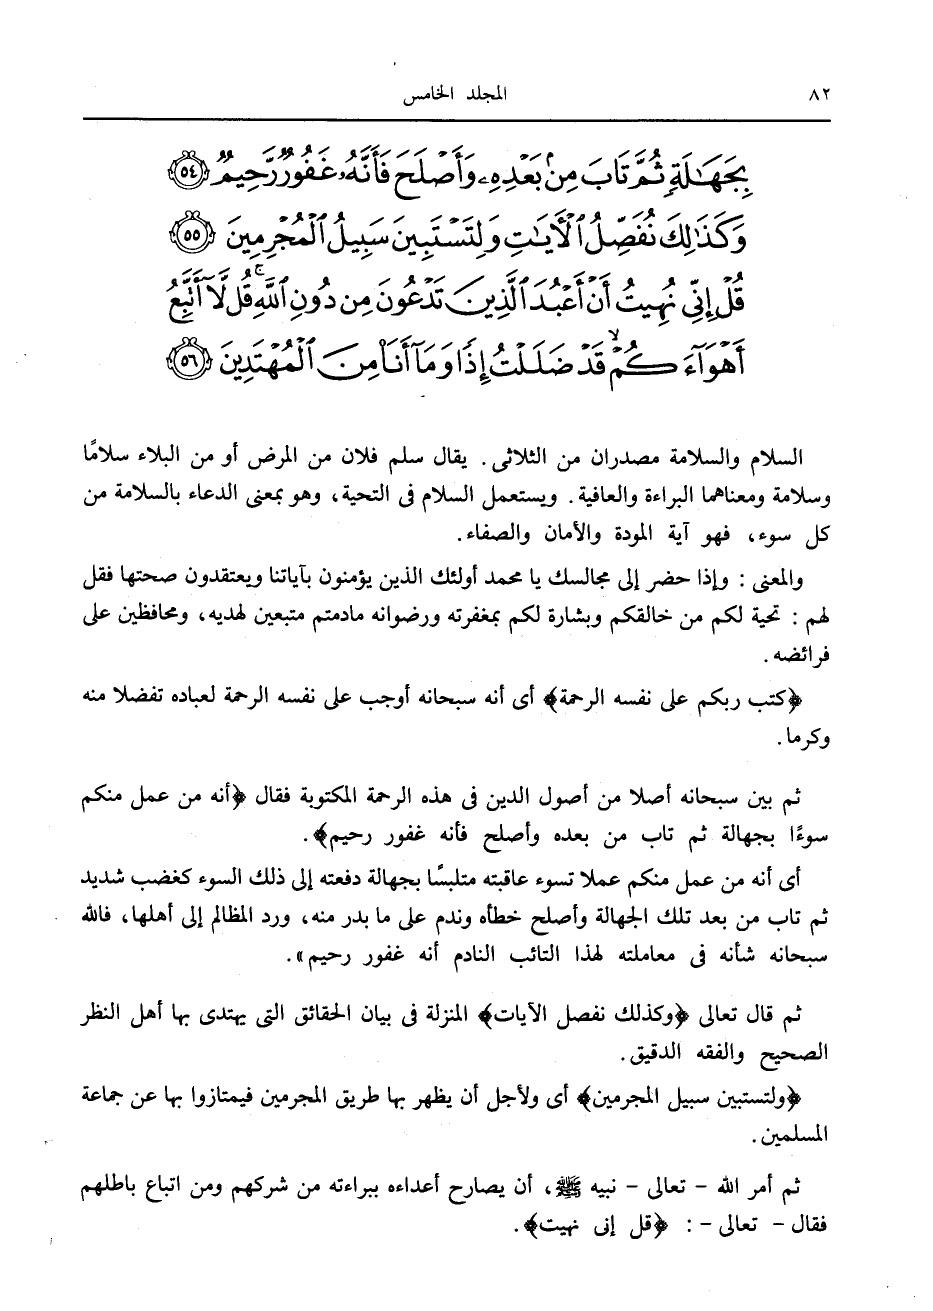 ٨٢ المجلد الخامس
بِجَهَٰلَةٍ ثُمَّ تَابَ مِنۢ بَعْدِهِۦ وَأَصْلَحَ فَأَنَّهُۥ غَفُورٌ رَّحِيمٌ ٥٤
وَكَذَٰلِكَ نُفَصِّلُ ٱلْأَيَٰتِ وَلِتَسْتَبِينَ سَبِيلُ ٱلْمُجْرِمِينَ ٥٥
قُلْ إِنِّى نُهِيتُ أَنْ أَعْبُدَ ٱلَّذِينَ تَدْعُونَ مِن دُونِ ٱللَّهِ ۚ قُل لَّآ أَتَّبِعُ
أَهْوَآءَكُمْ ۙ قَدْ ضَلَلْتُ إِذًا وَمَآ أَنَا۠ مِنَ ٱلْمُهْتَدِينَ ٥٦
السلام والسلامة مصدران من الثلاثى. يقال سلم فلان من المرض أو من البلاء سلامًا
وسلامة ومعناهما البراءة والعافية. ويستعمل السلام فى التحية، وهو بمعنى الدعاء بالسلامة من
كل سوء، فهو آية المودة والأمان والصفاء.
والمعنى : وإذا حضر إلى مجالسك يا محمد أولئك الذين يؤمنون بآياتنا ويعتقدون صحتها فقل
لهم : تحية لكم من خالقكم وبشارة لكم بمغفرته ورضوانه مادمتم متبعين لهديه، ومحافظين على
فرائضه.
﴿كتب ربكم على نفسه الرحمة﴾ أى أنه سبحانه أوجب على نفسه الرحمة لعباده تفضلا منه
وكرما.
ثم بين سبحانه أصلا من أصول الدين فى هذه الرحمة المكتوبة فقال ﴿أنه من عمل منكم
سوءًا بجهالة ثم تاب من بعده وأصلح فأنه غفور رحيم﴾.
أى أنه من عمل منكم عملا تسوء عاقبته متلبسًا بجهالة دفعته إلى ذلك السوء كغضب شديد
ثم تاب من بعد تلك الجهالة وأصلح خطأه وندم على ما بدر منه، ورد المظالم إلى أهلها، فالله
سبحانه شأنه فى معاملته لهذا التائب النادم أنه غفور رحيم».
ثم قال تعالى ﴿وكذلك نفصل الآيات﴾ المنزلة فى بيان الحقائق التى يهتدى بها أهل النظر
الصحيح والفقه الدقيق.
﴿ولتستبين سبيل المجرمين﴾ أى ولأجل أن يظهر بها طريق المجرمين فيمتازوا بها عن جماعة
المسلمين.
ثم أمر الله - تعالى - نبيه ﷺ، أن يصارح أعداءه ببراءته من شركهم ومن اتباع باطلهم
فقال - تعالى - : ﴿قل إنى نهيت﴾.